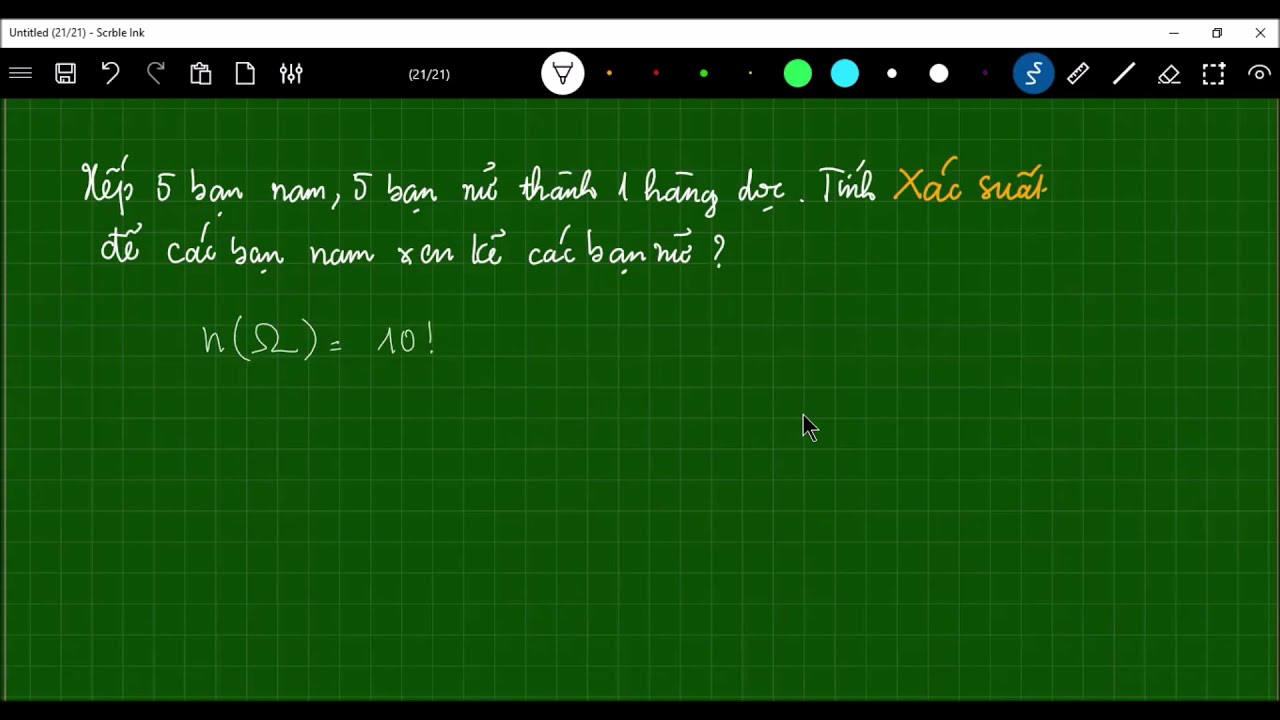 Untitled (21/21) - Scrble Ink
(21/21)
Xếp 5 bạn nam, 5 bạn nữ thành 1 hàng dọc. Tính Xác suất
để các bạn nam xen kẽ các bạn nữ ?
n(Ω) = 10!